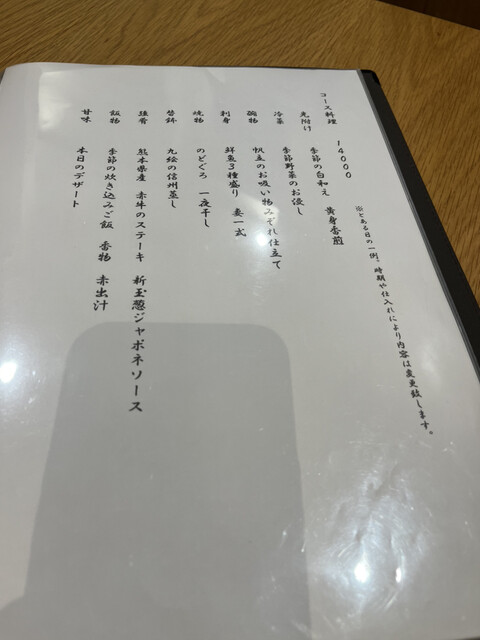 コース料理 14000
※とある日の一例。時期や仕入れにより内容は変更致します。
先附け 季節の白和え 黄身香煎
冷菜 季節野菜のお浸し
椀物 帆立のお吸い物みぞれ仕立て
刺身 鮮魚3種盛り 妻一式
焼物 のどぐろ 一夜干し
替鉢 九絵の信州蒸し
強肴 熊本県産 赤牛のステーキ 新玉葱ジャポネソース
飯物 季節の炊き込みご飯 香物 赤出汁
甘味 本日のデザート